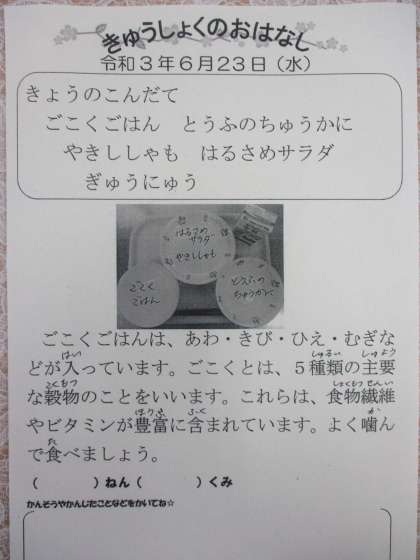 きゅうしょくのおはなし
令和３年６月２３日（水）
きょうのこんだて
ごこくごはん　とうふのちゅうかに
やきししゃも　はるさめサラダ
ぎゅうにゅう
はるさめ
サラダ
やきししゃも
ごこく
ごはん
とうふの
ちゅうかに
ごこくごはんは、あわ・きび・ひえ・むぎな
はい　しゅるい　しゅよう
どが入っています。ごこくとは、５種類の主要
こくもつ　しょくもつせんい
な穀物のことをいいます。これらは、食物繊維
ほうふ　ふく　か
やビタミンが豊富に含まれています。よく噛ん
た
で食べましょう。
（　　　）ねん（　　　）くみ
かんそうやかんじたことなどをかいてね☆